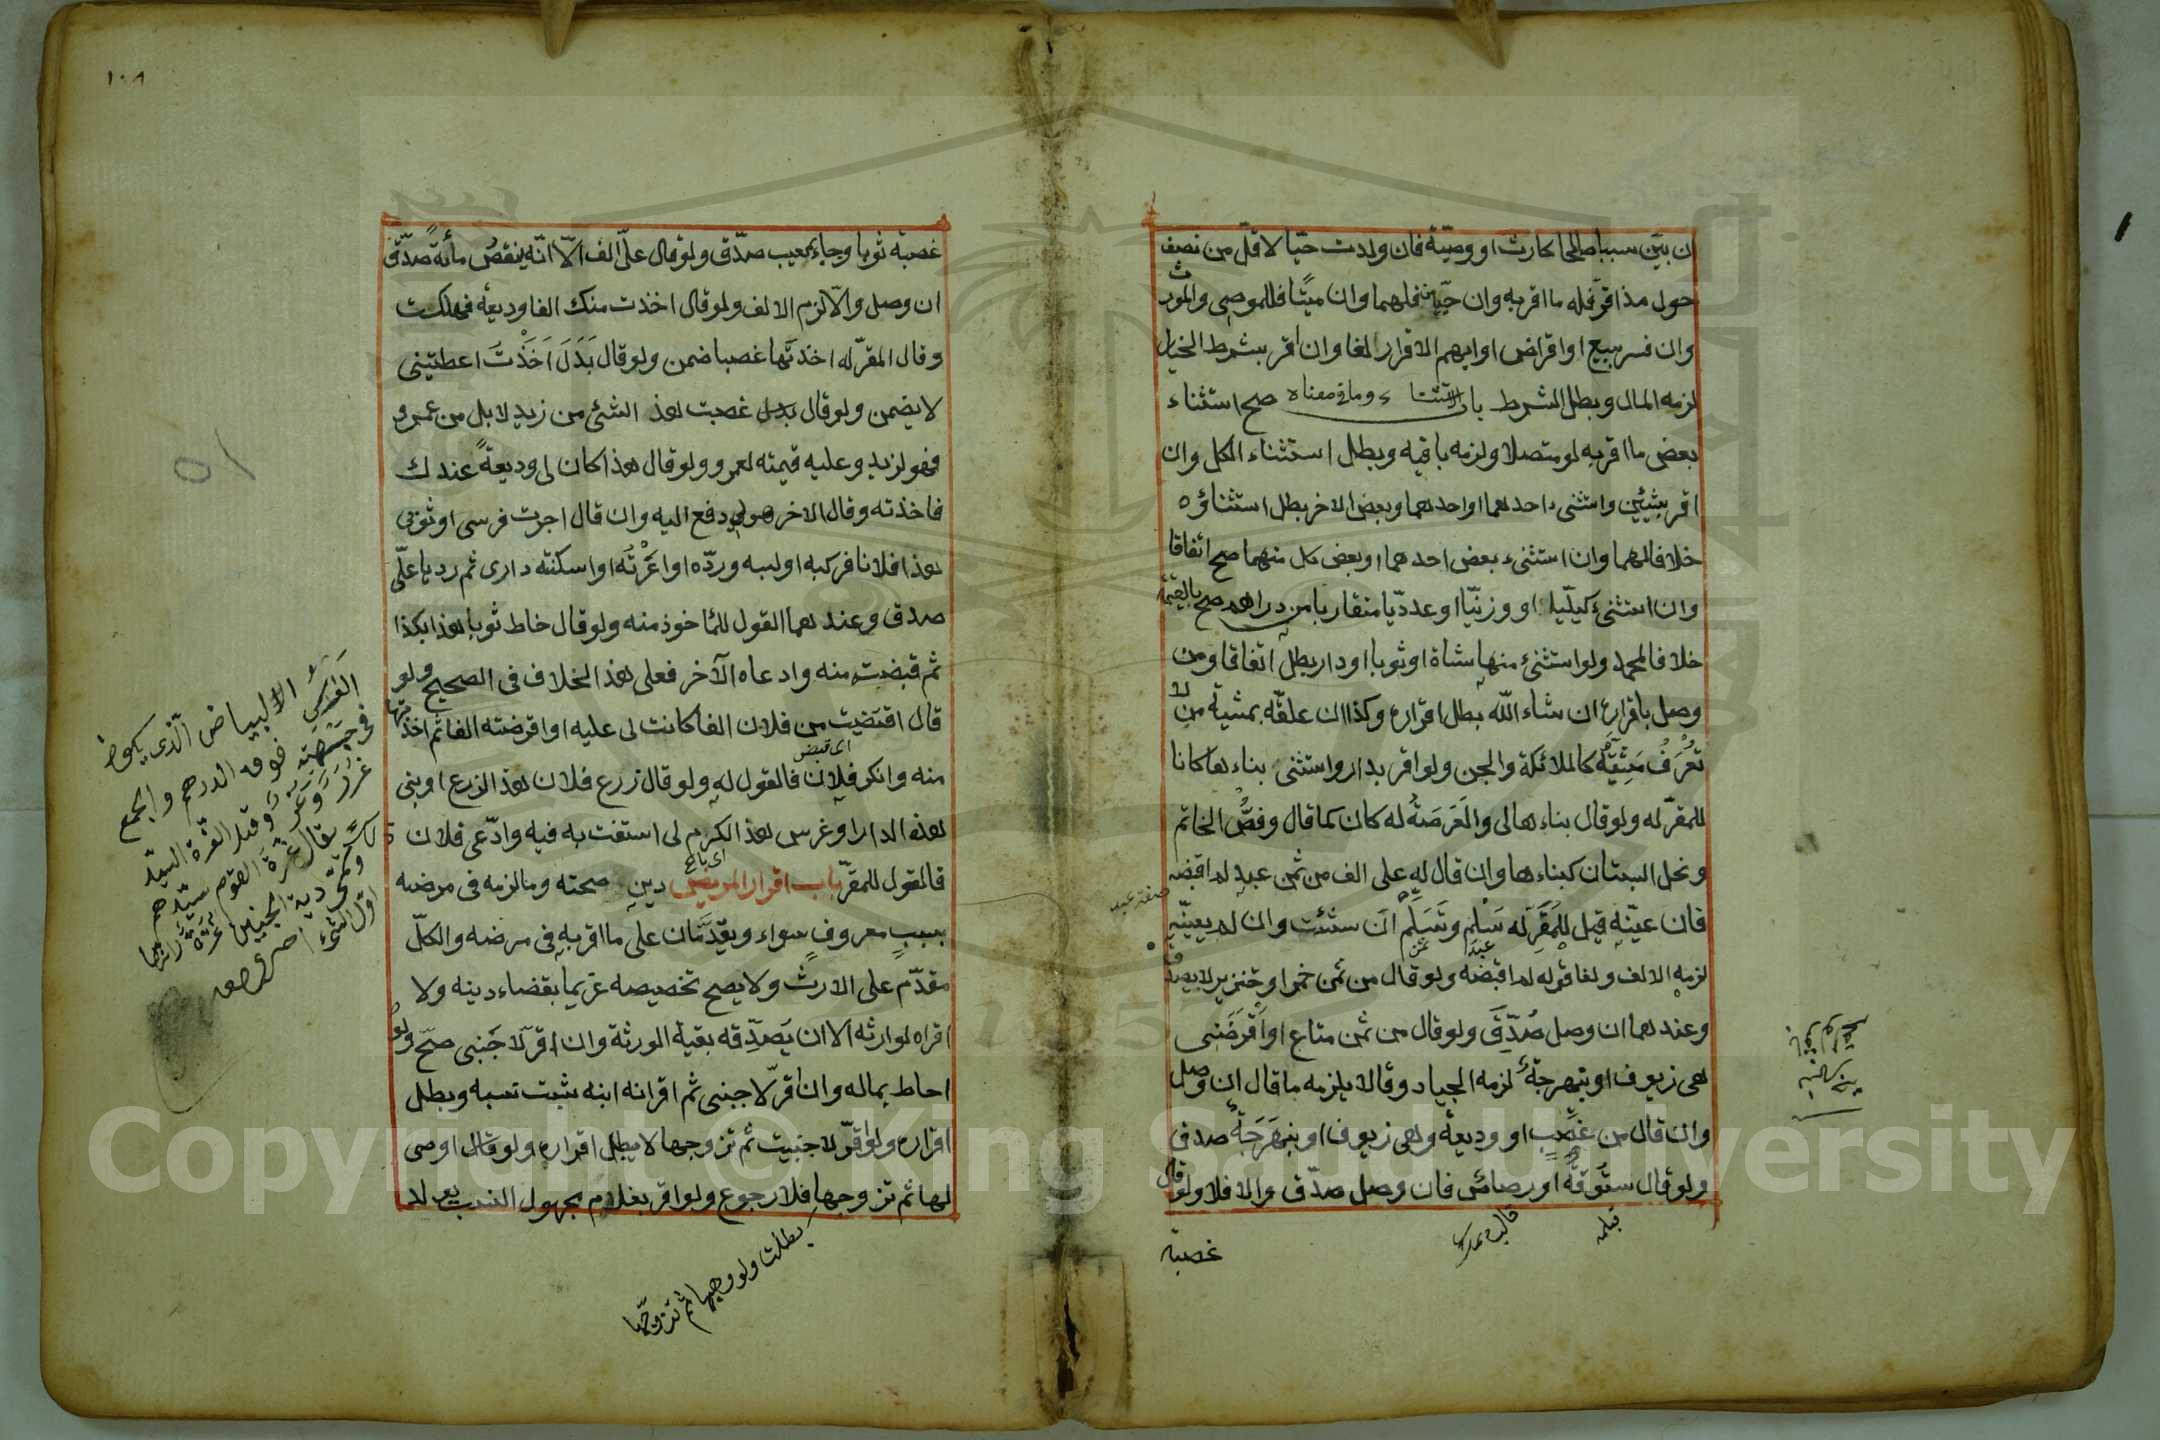 ان بيّن سببا صالحا كارث او وصيّة فان ولدت حيّا لاقلّ من نصف
حول مذ اقرّ فله ما اقر به وان حيّين فلهما وان ميّتا فللموصى والمورث
وان فسر ببيع او اقراض او ابهم الاقرار لغا وان اقر بشرط الخيار
لزمه المال وبطل الشرط باب الاستثناء وما فى معناه صح استثناء
بعض ما اقر به لو متصلا ولزمه باقيه وبطل استثناء الكل وان
اقر بشيئين واستثنى احدهما او احدهما وبعض الاخر بطل استثناؤه
خلافا لهما وان استثنى بعض احدهما او بعض كل منهما صح اتفاقا
وان استثنى كيليّا او وزنيّا او عدديّا متقاربا من دراهم صح بالقيمة
خلافا لمحمد ولو استثنى منها شاة او ثوبا او دارا بطل اتفاقا ومن
وصل باقراره ان شاء اللّه بطل اقراره وكذا ان علقّه بمشية من لا
تعْرَفُ مَشِيَّتُه كالملائكة والجن ولو اقر بدار واستثنى بناءها كانا
للمقرّ له ولو قال بناءها لى والعَرَصَةُ له كان كما قال وفصُّ الخاتم
ونخل البستان كبناءها وان قال له على الف من ثمن عبد لم اقبضه
فان عيّنه قيل للمُقَرِّ له سَلِّم وتَسَلَّم ان شئت وان لم يعيّنه
لزمه الالف ولغا قوله لم اقبضه ولو قال من ثمن خمر او خنزير لا يصدق
وعندهما ان وصل صُدِّقَ ولو قال من ثمن متاع او اَقْرَضَنى
هى زيوف او بنهرجة لزمه الجياد وقالا يلزمه ما قال ان وصل
وان قال من غصب او وديعة وهى زيوف او بنهرَجَة صدق
ولو قال ستّوقة او رصاص فان وصل صدّق والا فلا ولو قال
غصبته
غصبته ثوبا وجاء بمعيب صدّق ولو قال علىّ الف الاّ انّه ينقصُ مأئة صدّق
ان وصل والاّ لزم الالف ولو قال اخذت منك الفا وديعة فهلكت
وقال المقرّ له اخذتَها غصبا ضمن ولو قال بَدَلَ اَخَذْتَ اعطيتنى
لا يضمن ولو قال بدل غصبت هذا الشئ من زيد لا بل من عمرو
فهو لزيد وعليه قيمته لعمرو ولو قال هذا كان لى وديعةً عندك
فاخذته وقال الاخر هو لى دفع اليه وان قال اجرت فرسى او ثوبى
هذا فلانا فركبه او لبسه وردّه او اعَرْتُه او اسكنته دارى ثم ردها علىّ
صدق وعندهما القول للمأخوذ منه ولو قال خاط ثوبا هذا بكذا
ثم قبضت منه وادعاه الآخر فعلى هذا الخلاف فى الصحيح ولو
قال اقتضيت من فلان الفا كانت لى عليه او اقرضته الفا ثم اخذتها
اى قبض
منه وانكر فلان فالقول له ولو قال زرع فلان هذا الزرع او بنى
هذه الدار او غرس هذا الكرم لى استعنت به فيه وادّعى فلان
فالقول للمقرّ باب اقرار المريض دين صحته وما لزمه فى مرضه
بسبب معروف سواء ويقدَّمان على ما اقر به فى مرضه والكلّ
مقدّم على الارث ولا يصح تخصيصه غريما بقضاء دينه ولا
اقراره لوارثه الا ان يَصَدِّقه بقية الورثة وان اقرّ لاجَنبى صحّ ولو
احاط بماله وان اقرّ لاجنبى ثم اقر انه ابنه ثبت نسبه وبطل
اقراره ولو اقرّ لاجنبيت ثم تزوجها لا يبطل اقراره ولو قال اوصى
لها ثم تزوجها فلا رجوع ولو اقر بغلام مجهول النسب يولد
بطلت ولو وهبها ثم تزوجّها
١٠٨
الغرّة الابياض الّذى يكون
فى جبهة الفرس فوق الدرهم والجمع
غُرَر وغرّة وقيل الغرة السيّد
يقال غرة القوم سيّدهم